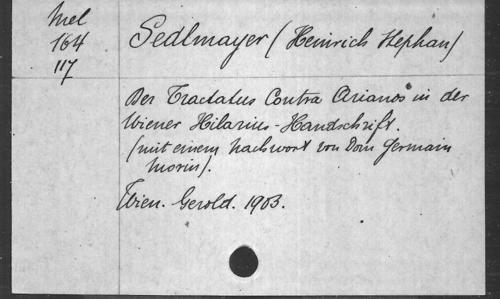 Mel
164
117
Sedlmayer (Heinrich Stephan)
Der Tractatus Contra Arianos in der
Wiener Hilarius-Handschrift.
(mit einem Nachwort von Dom Germain
Morin).
Wien. Gerold. 1903.